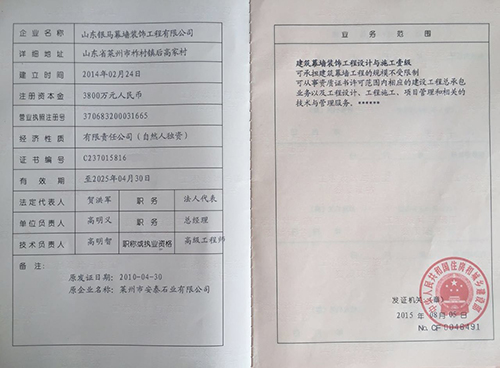 企业名称 山东银马幕墙装饰工程有限公司
详细地址 山东省莱州市柞村镇后高家村
建立时间 2014年02月24日
注册资本金 3800万元人民币
营业执照注册号 370683200031665
经济性质 有限责任公司（自然人独资）
证书编号 C237015816
有效期 至2025年04月30日
法定代表人 贺洪军 职务 法人代表
单位负责人 高明义 职务 总经理
技术负责人 高明智 职称或执业资格 高级工程师
备注：
原发证日期：2010-04-30
原企业名称：莱州市安泰石业有限公司
业务范围
建筑幕墙装饰工程设计与施工壹级
可承担建筑幕墙工程的规模不受限制
可从事资质证书许可范围内相应的建设工程总承包
业务以及工程设计、工程施工、项目管理和相关的
技术与管理服务。******
中华人民共和国住房和城乡建设部
发证机关：（章）
2015年08月05日
No.CF 0046491